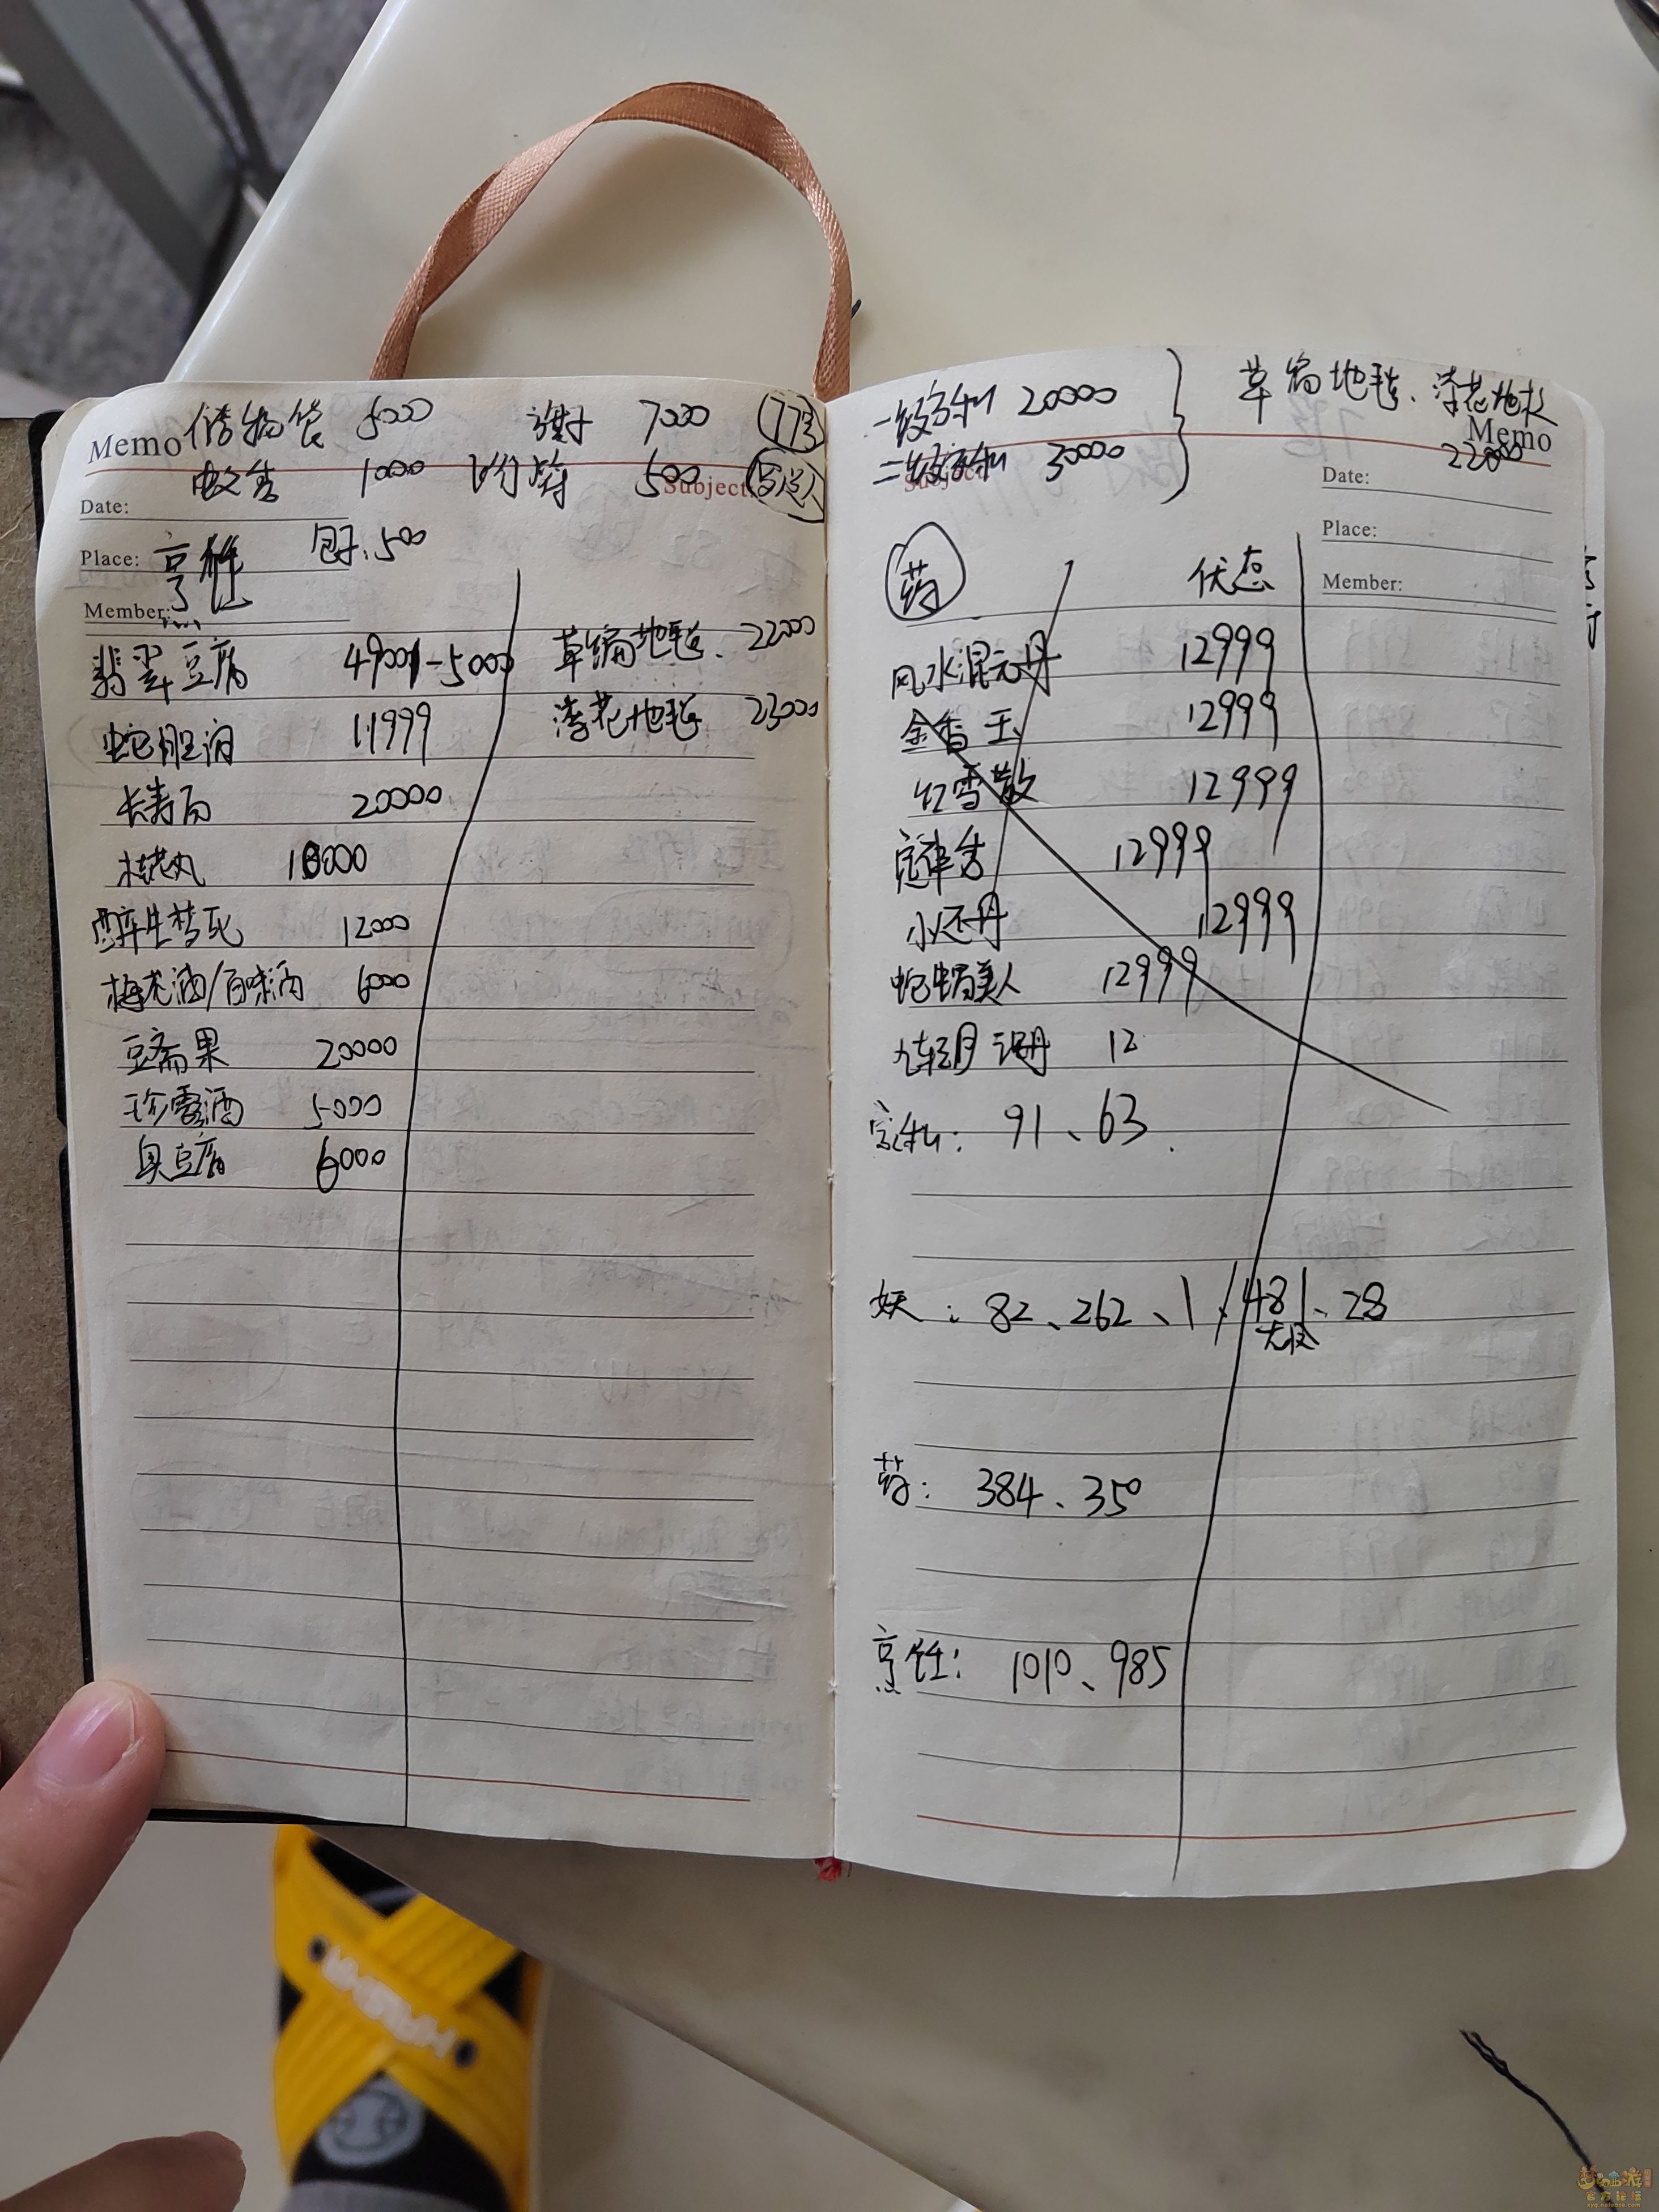 Memo 储物袋 5000 谢 7000
蚊害 1000 飞行符 500 Subject:
Date:
Place: 烹饪 包子:500
Member:
翡翠豆腐 49001-5000 草编地毯. 22000
蛇胆酒 11999 漆花地毯 23000
长寿面 20000
桂花丸 18000
醉生梦死 12000
梅花酒/百味酒 6000
豆斋果 20000
珍露酒 5000
臭豆腐 6000
一级家私 20000 草编地毯、漆花地毯
二级家私 30000 22000 Memo
Subject:
Date:
Place:
药 状态
Member:
风水混元丹 12999
金香玉 12999
红雪散 12999
定神香 12999
小还丹 12999
蛇蝎美人 12999
九转 魂丹 12
家私: 91、63.
妖: 82、262、1、481、28
药: 384、350
烹饪: 1010、985